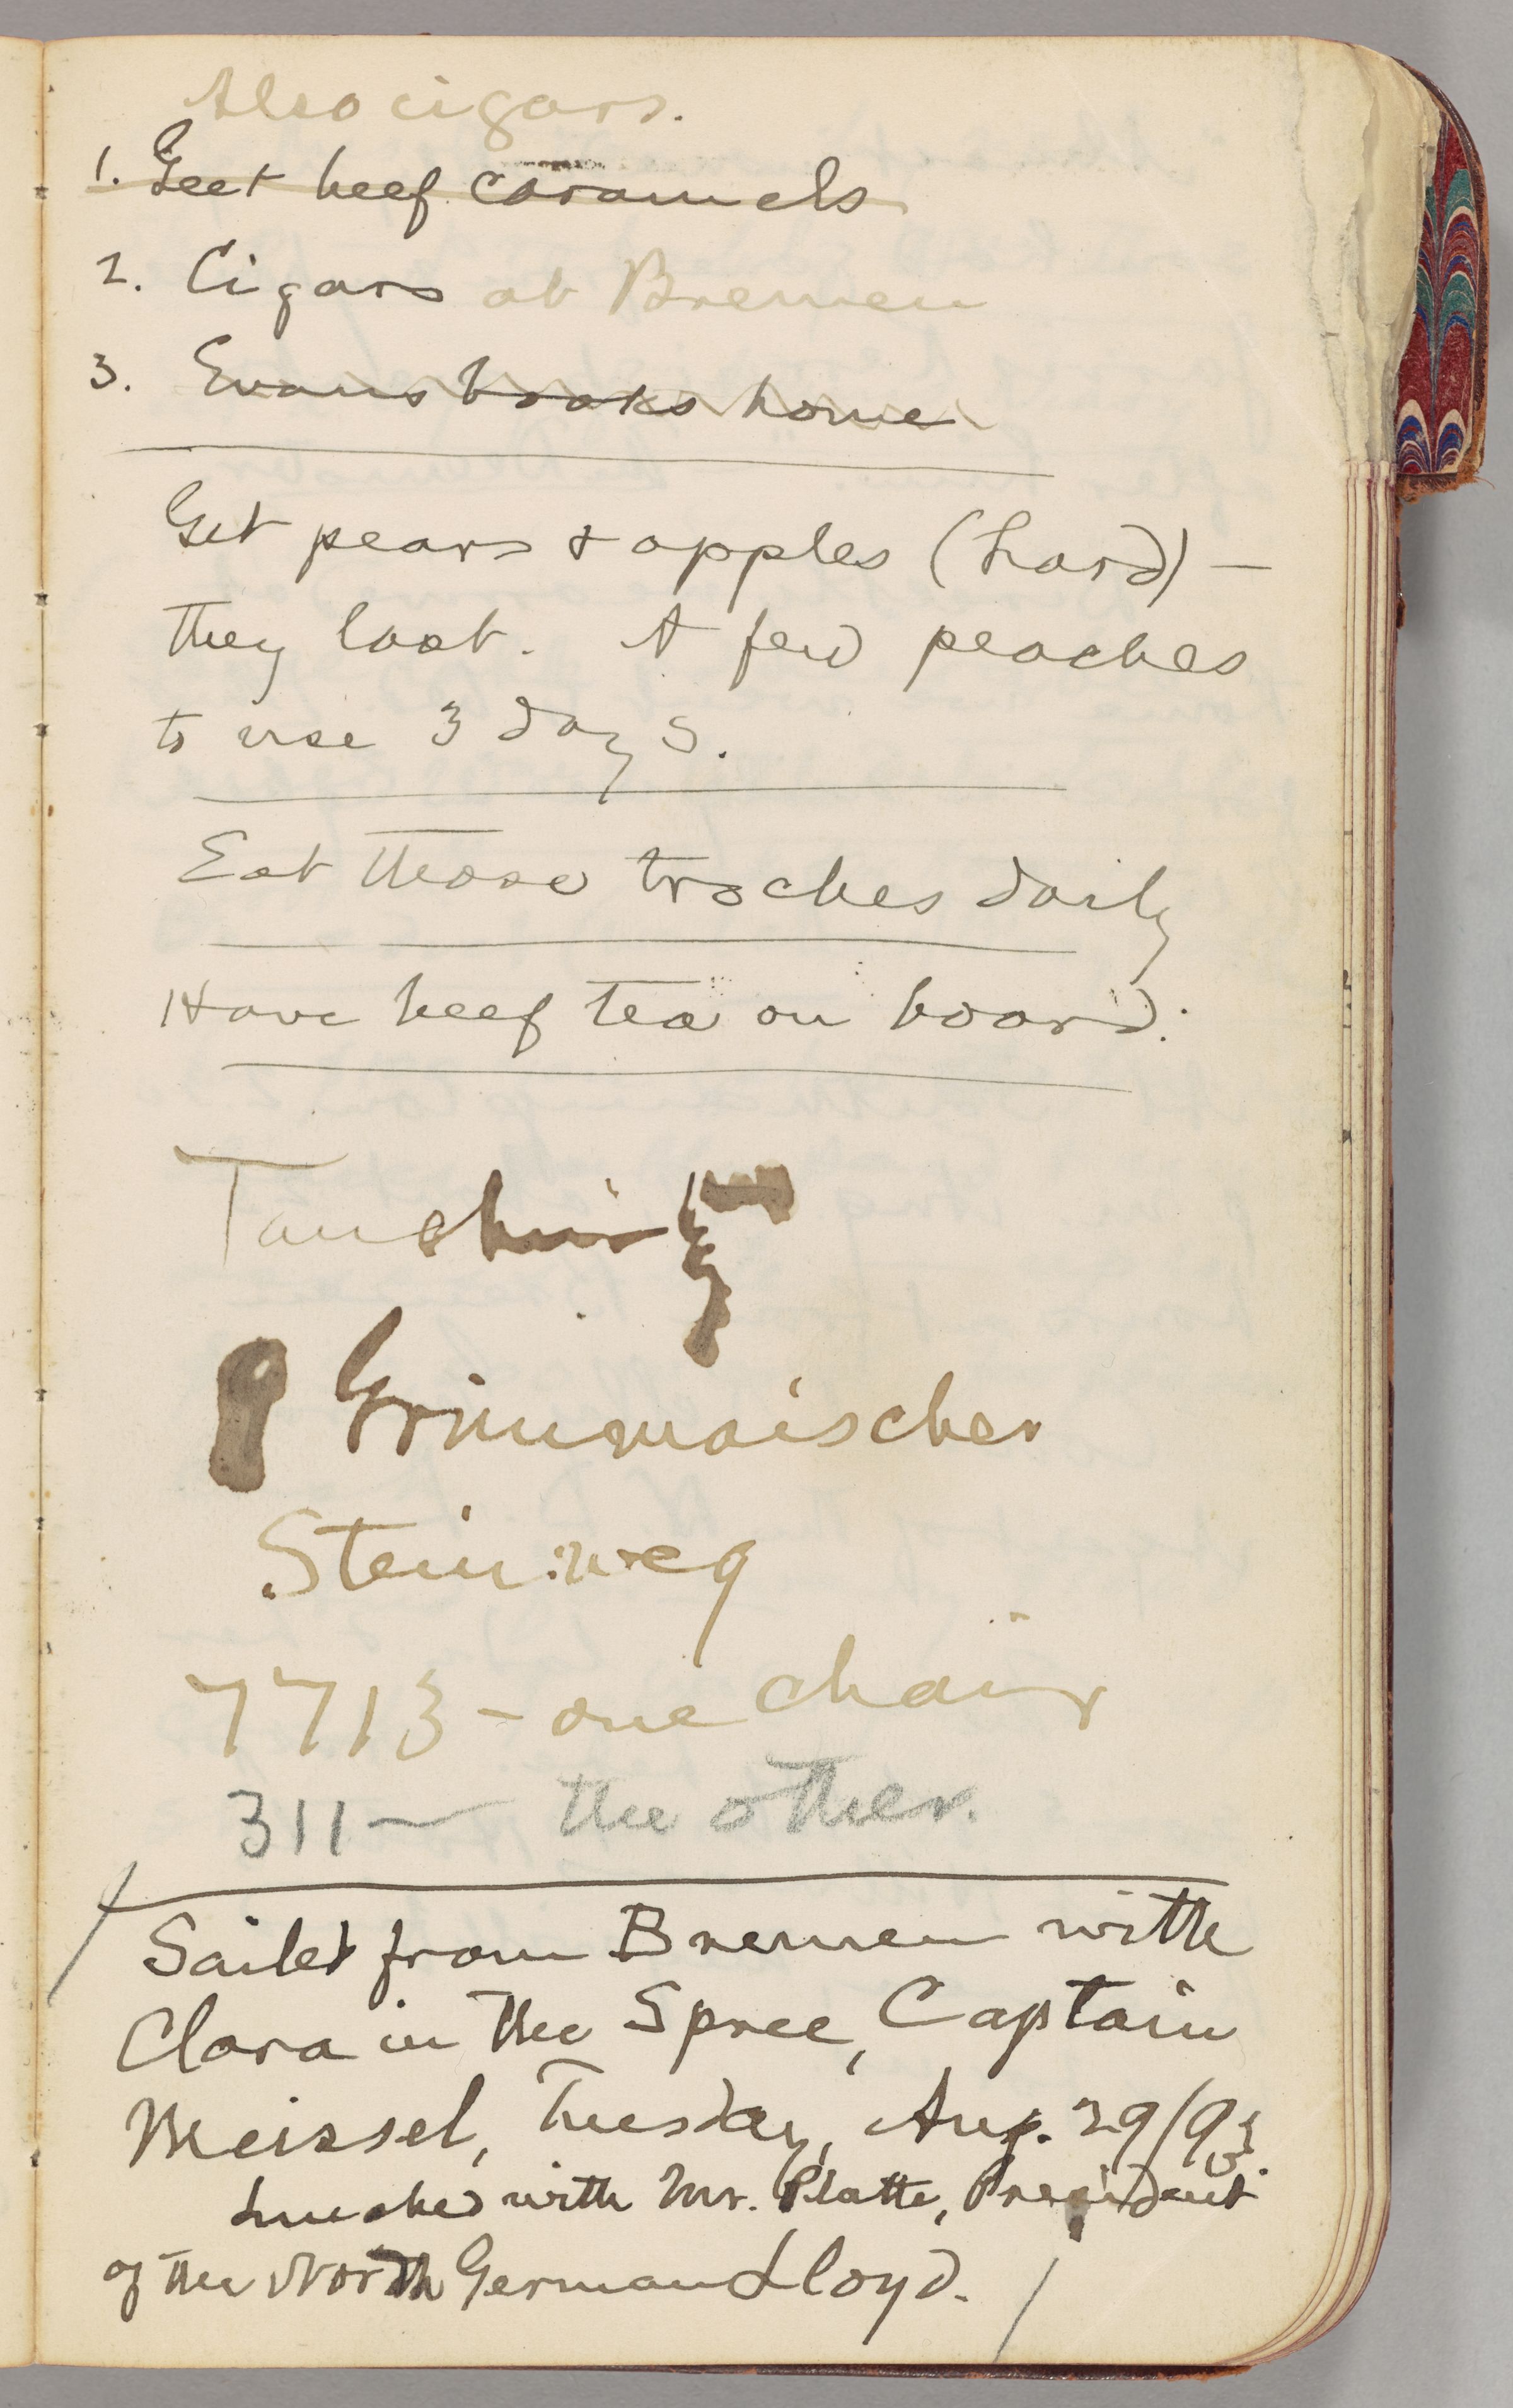 Also cigars.
1. Get beef caramels
2. Cigars at Bremen
3. Evans books home
Get pears & apples (hard) —
they last. A few peaches
to use 3 days.
Eat those troches daily
Have beef tea on board.
Tauchnitz
Grimmaischer
Steinweg
7713 – one chair
311 — the other.
Sailed from Bremen with
Clara in the Spree, Captain
Meissel, Tuesday, Aug. 29/93.
Lunched with Mr. Platte, President
of the North German Lloyd. /